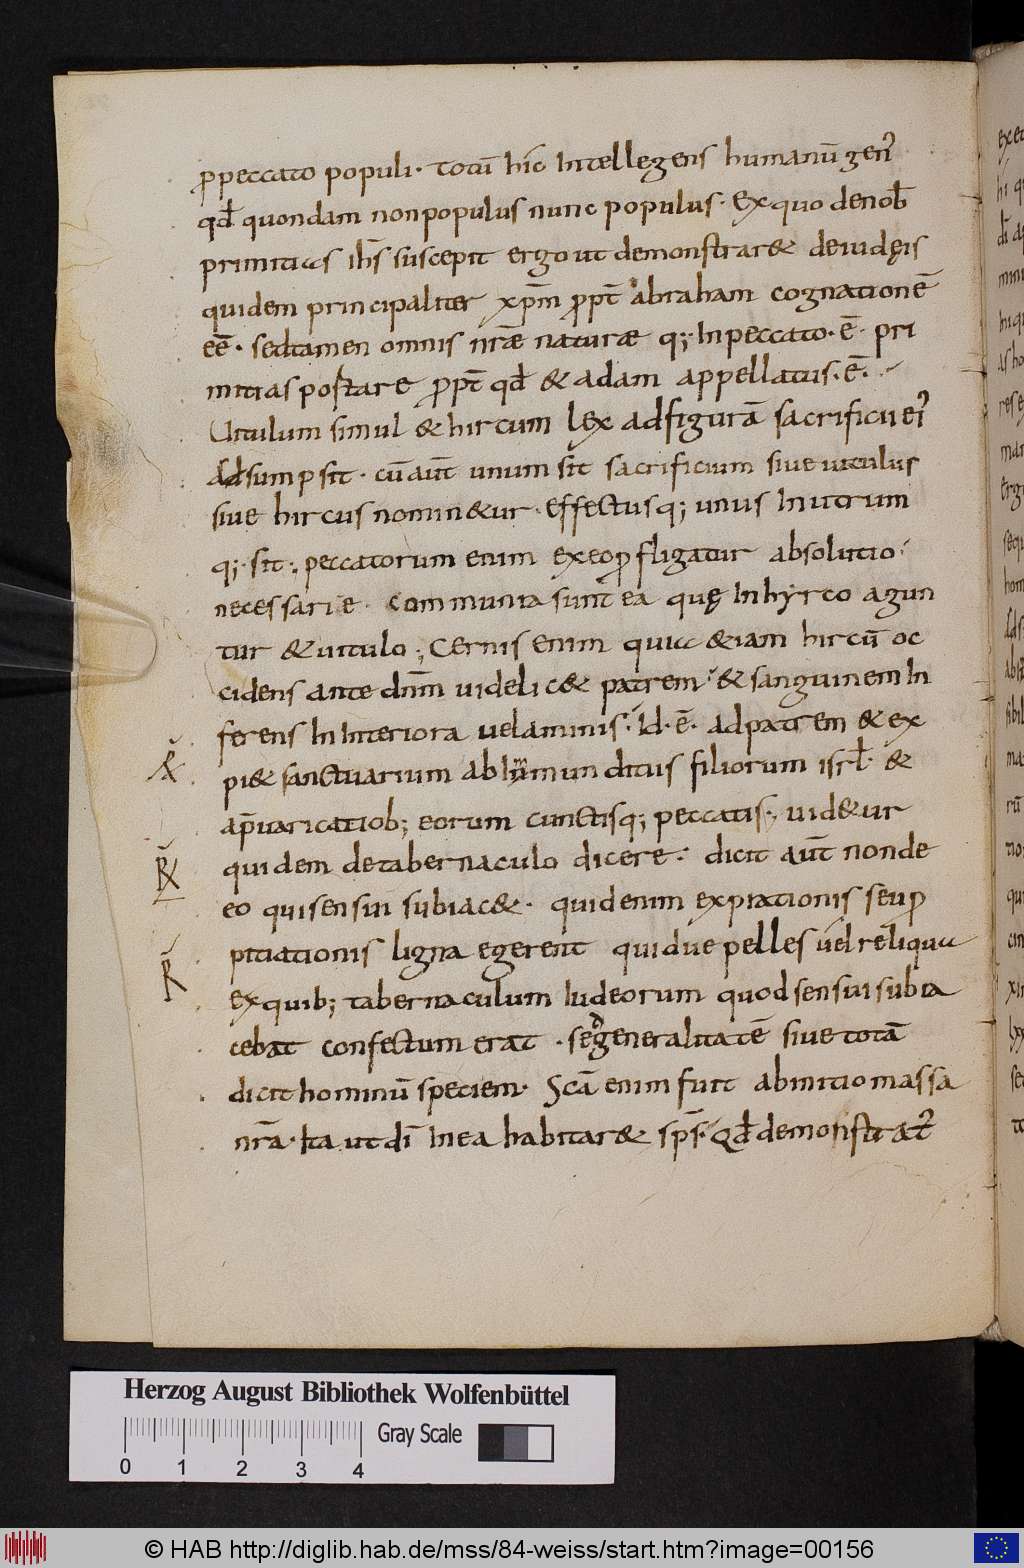 ꝓpeccato populi· totū hic Intellegens humanū genꝰ
qđ quondam non populus nunc populus· Ex quo denoƀ
primitias ihs̄ suscepit ergo ut demonstrar& de iudęis
quidem principaliter xp̄m ꝓpt̄ abraham cognationē
eē· sed tamen omnis nr̄æ naturæ q; In peccato· ē· pri
mitias postare ꝓpt̄ qđ & adam appellatus· ē·
Uitulum simul & hircum lex ad figurā sacrificii eiꝰ
Adsumpsit· cū aūt unum sit sacrificium siue uitulus
siue hircus nomin&ur· effectusq; unus In utrum
q; sit· peccatorum enim ex eo ꝓfligatur absolutio·
necessarie· Communia sunt ea quę In hyrco agun
tur & uitulo; Cernis enim quia &iam hircū oc
cidens ante dn̄m uidelic& patrem· & sanguinem In
ferens In Interiora uelaminis· Id· ē· ad patrem & ex
pi& sanctuarium ab Inmunditiis filiorum isrł· &
a p̄uaricatioƀ; eorum cunctisq; peccatis· uid&ur
quidem de tabernaculo dicere· dicit aūt non de
eo qui sensui subiac&· quid enim expiationis seu ꝓ
pitiationis ligna egerent quidue pelles uel reliqua
ex quib; tabernaculum Iudeorum quod sensui subia
cebat confectum erat · sed generalitatē siue totā
dicit hominū speciem· Scā enim fuit ab initio massa
nr̄a· Ita ut dī In ea habitar& sps̄· Qđ demonstratꝰ
Herzog August Bibliothek Wolfenbüttel
Gray Scale
0 1 2 3 4
© HAB http://diglib.hab.de/mss/84-weiss/start.htm?image=00156